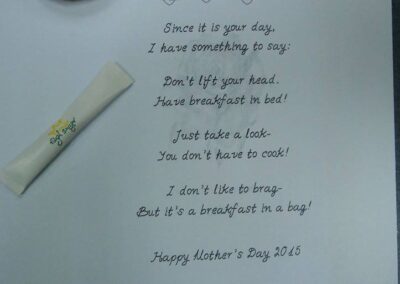 Since it is your day,
I have something to say:
Don't lift your head.
Have breakfast in bed!
Just take a look-
You don't have to cook!
I don't like to brag-
But it's a breakfast in a bag!
Happy Mother's Day 2015